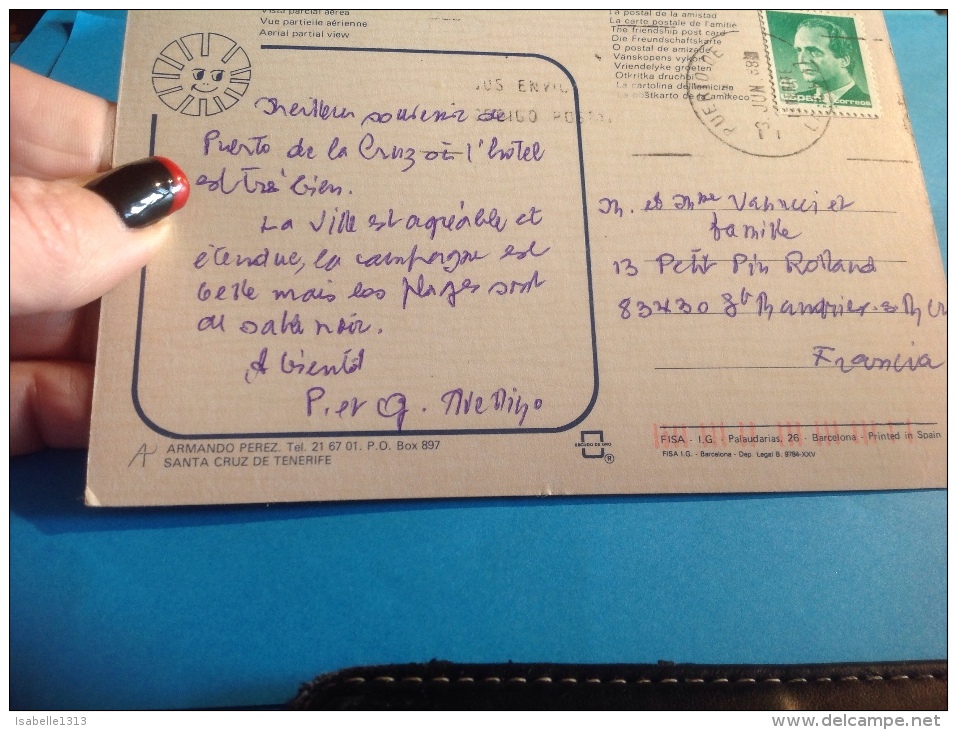 Vista parcial aérea
Vue partielle aérienne
Aerial partial view
La postal de la amistad
La carte postale de l'amitie
The friendship post card
Die Freundschaftskarte
O postal de amizade
Vänskopens vykort
Vriendelyke groeten
Otkritka druchoi
La cartolina dell'amicizia
España
correos
PUERTO DE
JUN
SUS ENVIO
Meilleur souvenir de
Puerto de la Cruz où l'hôtel
est très bien.
La ville est agréable et
étendue, la campagne est
belle mais les plages sont
de sable noir.
A bientôt
P. et G.
M. et Mme Vannuci et
famille
13 Petit Pin Rolland
83430 St Mandrier s M
Francia
ARMANDO PEREZ. Tel. 21 67 01. P.O. Box 897
SANTA CRUZ DE TENERIFE
ESCUDO DE ORO
®
FISA - I.G. Palaudarias, 26 - Barcelona - Printed in Spain
FISA I.G. - Barcelona - Dep. Legal B. 9784-XXV
Isabelle1313
www.delcampe.net